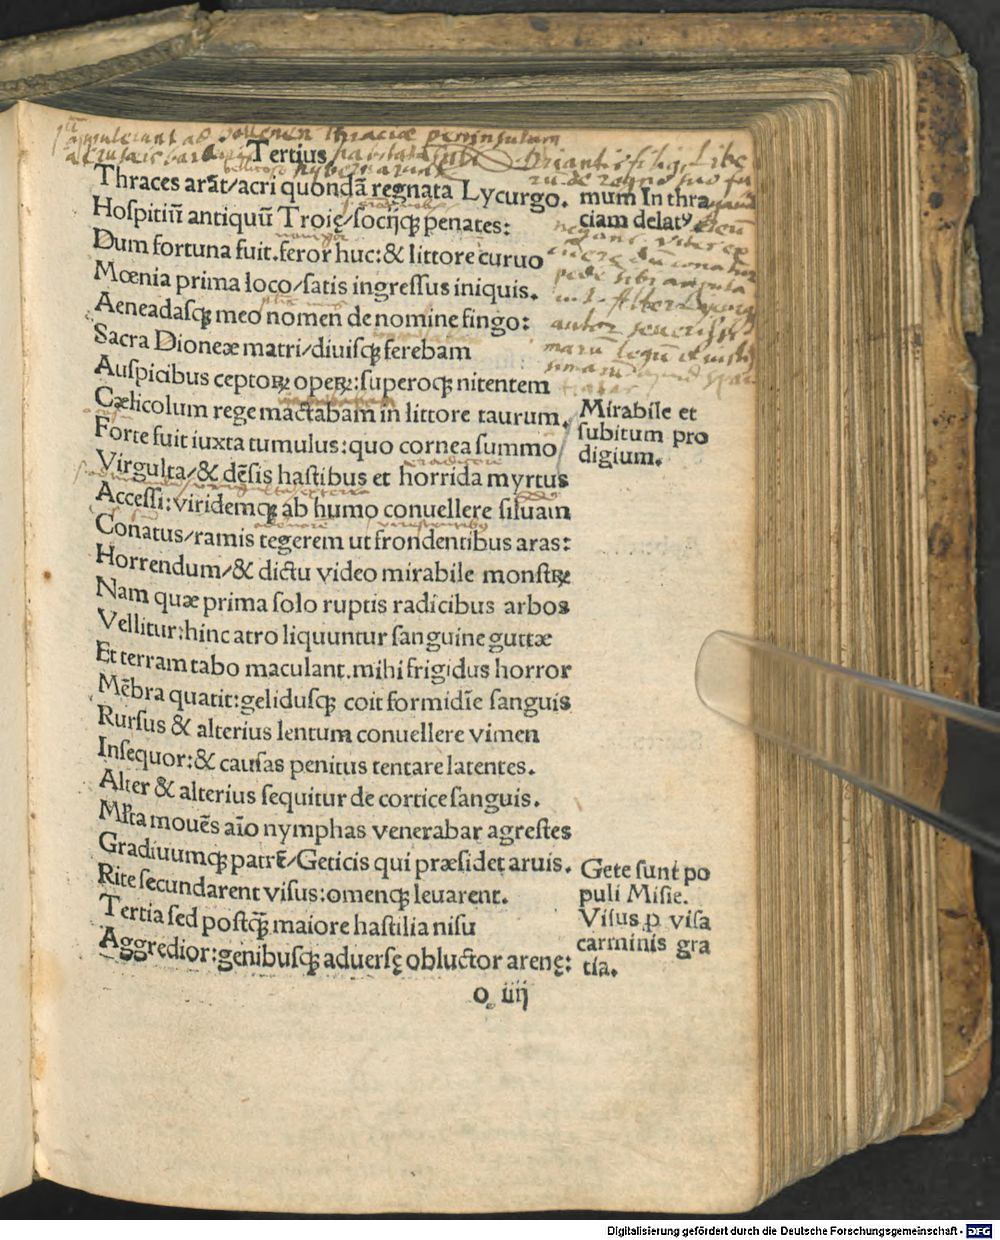 appulerunt ad thraciæ peninsulam
Tertius habitata sub Briantis filiꝰ Libe
rū de regno suo fu
Thraces arāt/acri quondā regnata Lycurgo.
Hoſpitiū antiquū Troię/ſociq; penates:
Dum fortuna fuit.feror huc:& littore curuo
Mœnia prima loco/ſatis ingreſſus iniquis.
Aeneadaſq; meo nomen de nomine fingo:
Sacra Dioneæ matri/diuiſq; ferebam
Auſpicibus ceptoꝝ opeꝝ:ſuperoq; nitentem
Cælicolum rege mactabam in littore taurum.
Forte fuit iuxta tumulus:quo cornea ſummo
Virgulta/& dēſis haſtibus et horrida myrtus
Acceſſi:viridemq; ab humo conuellere ſiluam
Conatus/ramis tegerem ut frondentibus aras:
Horrendum/& dictu video mirabile monſtꝝ
Nam quæ prima ſolo ruptis radicibus arbos
Vellitur:hinc atro liquuntur ſanguine guttæ
Et terram tabo maculant.mihi frigidus horror
Mēbra quatit:geliduſq; coit formidīe ſanguis
Rurſus & alterius lentum conuellere vimen
Inſequor:& cauſas penitus tentare latentes.
Alter & alterius ſequitur de cortice ſanguis.
Ml̄ta mouēs aīo nymphas venerabar agreſtes
Gradiuumq; patrē/Geticis qui præſidet aruis.
Rite ſecundarent viſus:omenq; leuarent.
Tertia ſed poſtq̄ maiore haſtilia niſu
Aggredior:genibuſq; aduerſę obluctor arenę:
o iiij
mum In thra
ciam delatꝰ
autor
Mirabile et
ſubitum pro
digium.
Gete ſunt po
puli Miſie.
Viſus ꝓ viſa
carminis gra
tia.
Digitalisierung gefördert durch die Deutsche Forschungsgemeinschaft - DFG